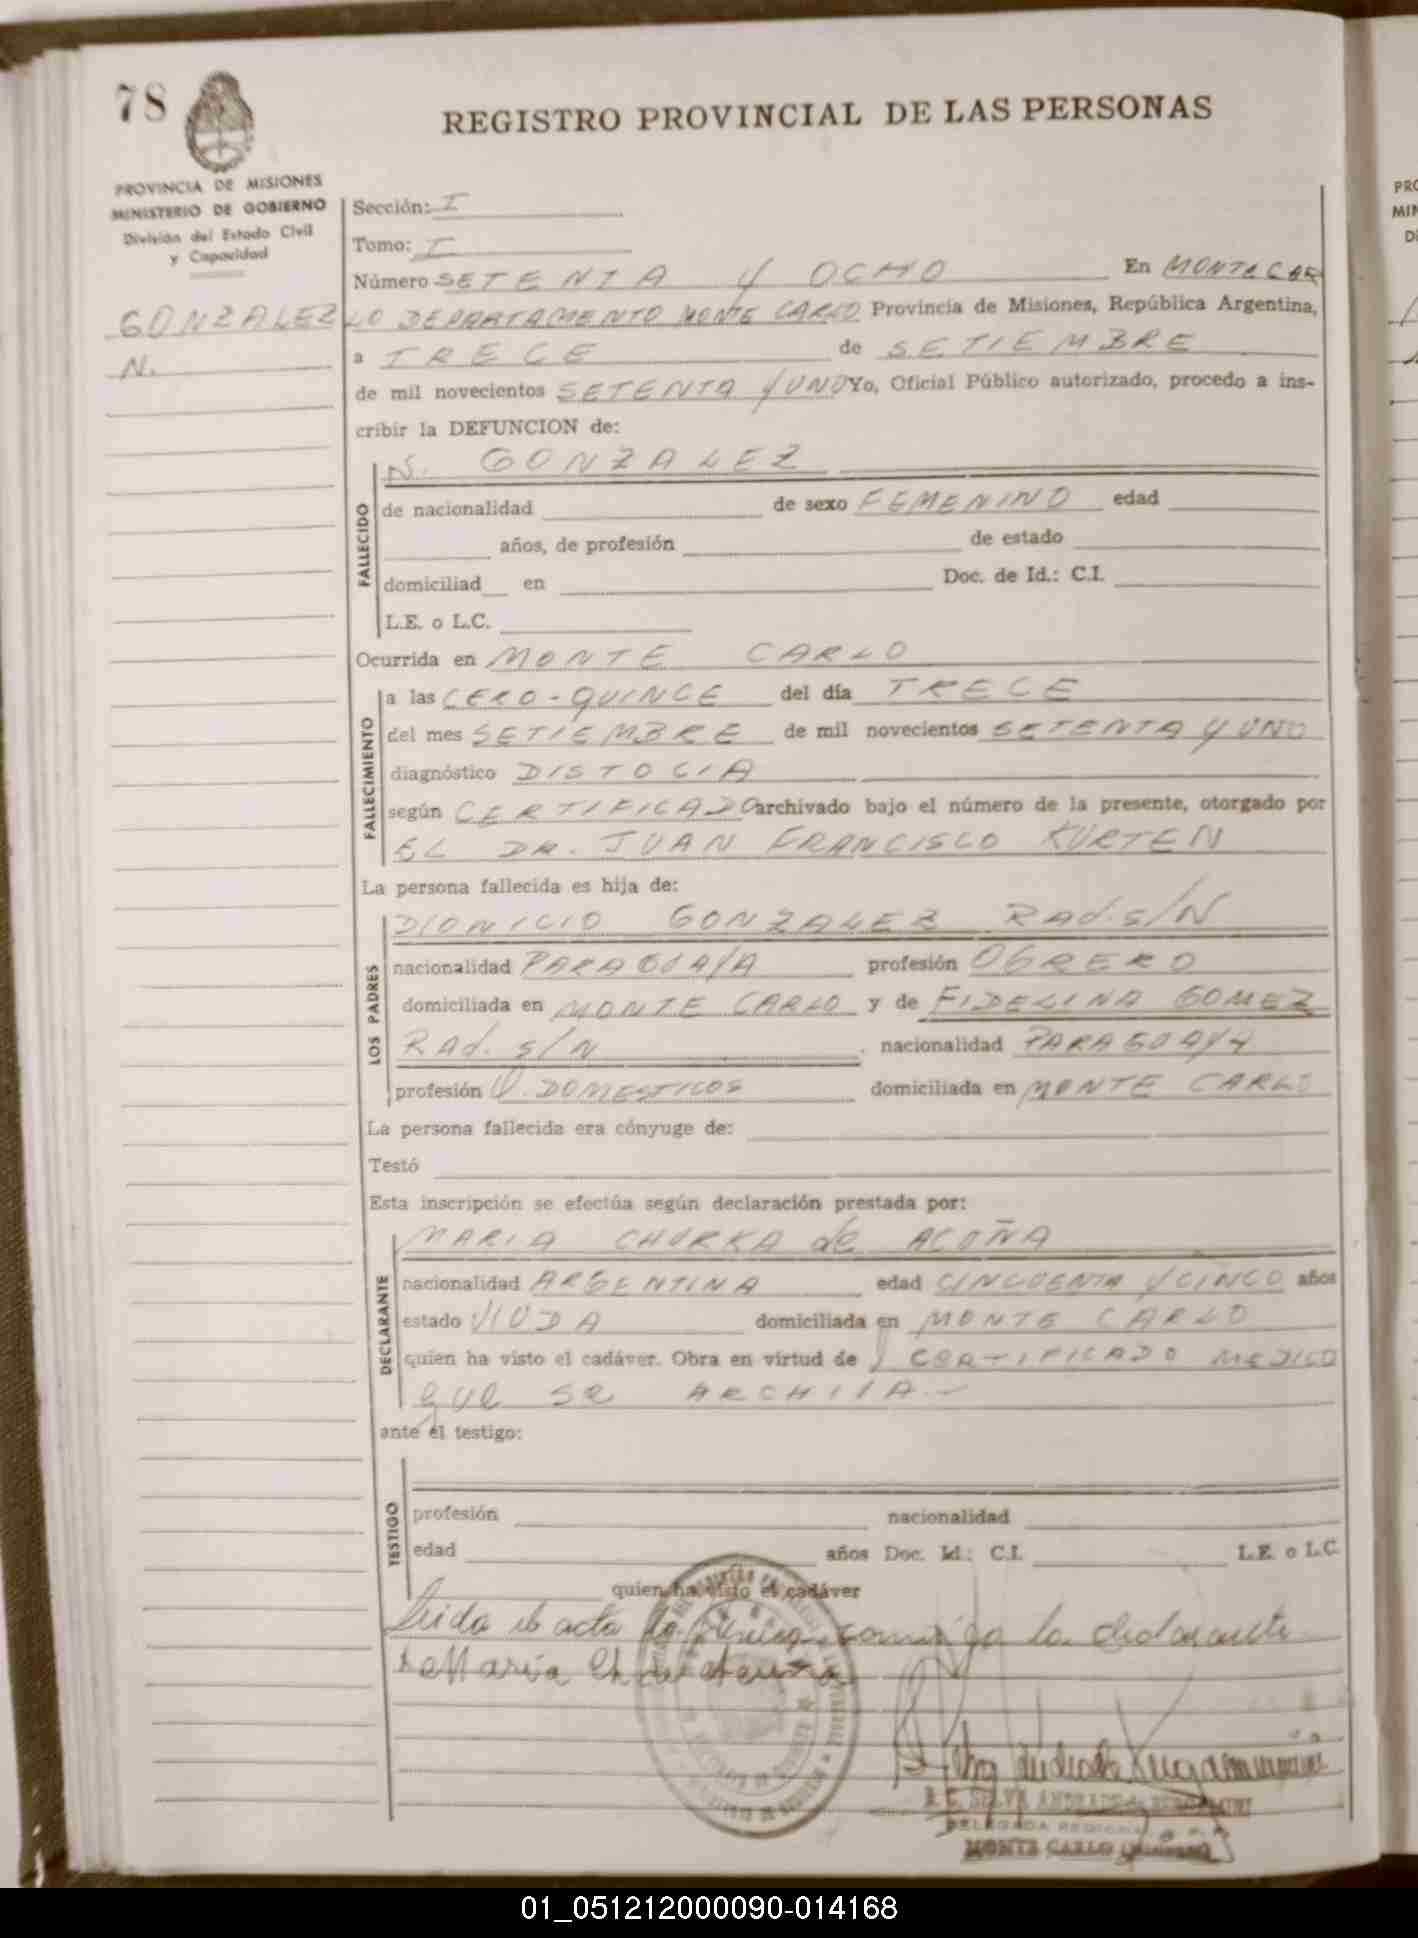 78
REGISTRO PROVINCIAL DE LAS PERSONAS
PROVINCIA DE MISIONES
MINISTERIO DE GOBIERNO
División del Estado Civil
y Capacidad
GONZALEZ
N.
Sección: I
Tomo: I
Número SETENTA Y OCHO En MONTECAR
LO DEPARTAMENTO MONTE CARLO Provincia de Misiones, República Argentina,
a TRECE de SETIEMBRE
de mil novecientos SETENTA Y UNO Yo, Oficial Público autorizado, procedo a ins-
cribir la DEFUNCION de:
FALLECIDO
N. GONZALEZ
de nacionalidad de sexo FEMENINO edad
años, de profesión de estado
domiciliad en Doc. de Id.: C.I.
L.E. o L.C.
Ocurrida en MONTE CARLO
FALLECIMIENTO
a las CERO-QUINCE del día TRECE
del mes SETIEMBRE de mil novecientos SETENTA Y UNO
diagnóstico DISTOCIA
según CERTIFICADO archivado bajo el número de la presente, otorgado por
EL DR. JUAN FRANCISCO KURTEN
La persona fallecida es hija de:
LOS PADRES
DIONICIO GONZALEZ Rad. s/N
nacionalidad PARAGUAYA profesión OBRERO
domiciliada en MONTE CARLO y de FIDELINA GOMEZ
Rad. s/N nacionalidad PARAGUAYA
profesión Q. DOMESTICOS domiciliada en MONTE CARLO
La persona fallecida era cónyuge de:
Testó
Esta inscripción se efectúa según declaración prestada por:
DECLARANTE
MARIA CHURKA de ACUÑA
nacionalidad ARGENTINA edad CINCUENTA Y CINCO años
estado VIUDA domiciliada en MONTE CARLO
quien ha visto el cadáver. Obra en virtud de CERTIFICADO MEDICO
QUE SE ARCHIVA.-
ante el testigo:
TESTIGO
profesión nacionalidad
edad años Doc. Id.: C.I. L.E. o L.C.
quien ha visto el cadáver
Leida el acta la conmigo la declarante
Maria
SELVA ANDRADE de BERGAMINI
DELEGADA REGIONAL
MONTE CARLO
01_051212000090-014168